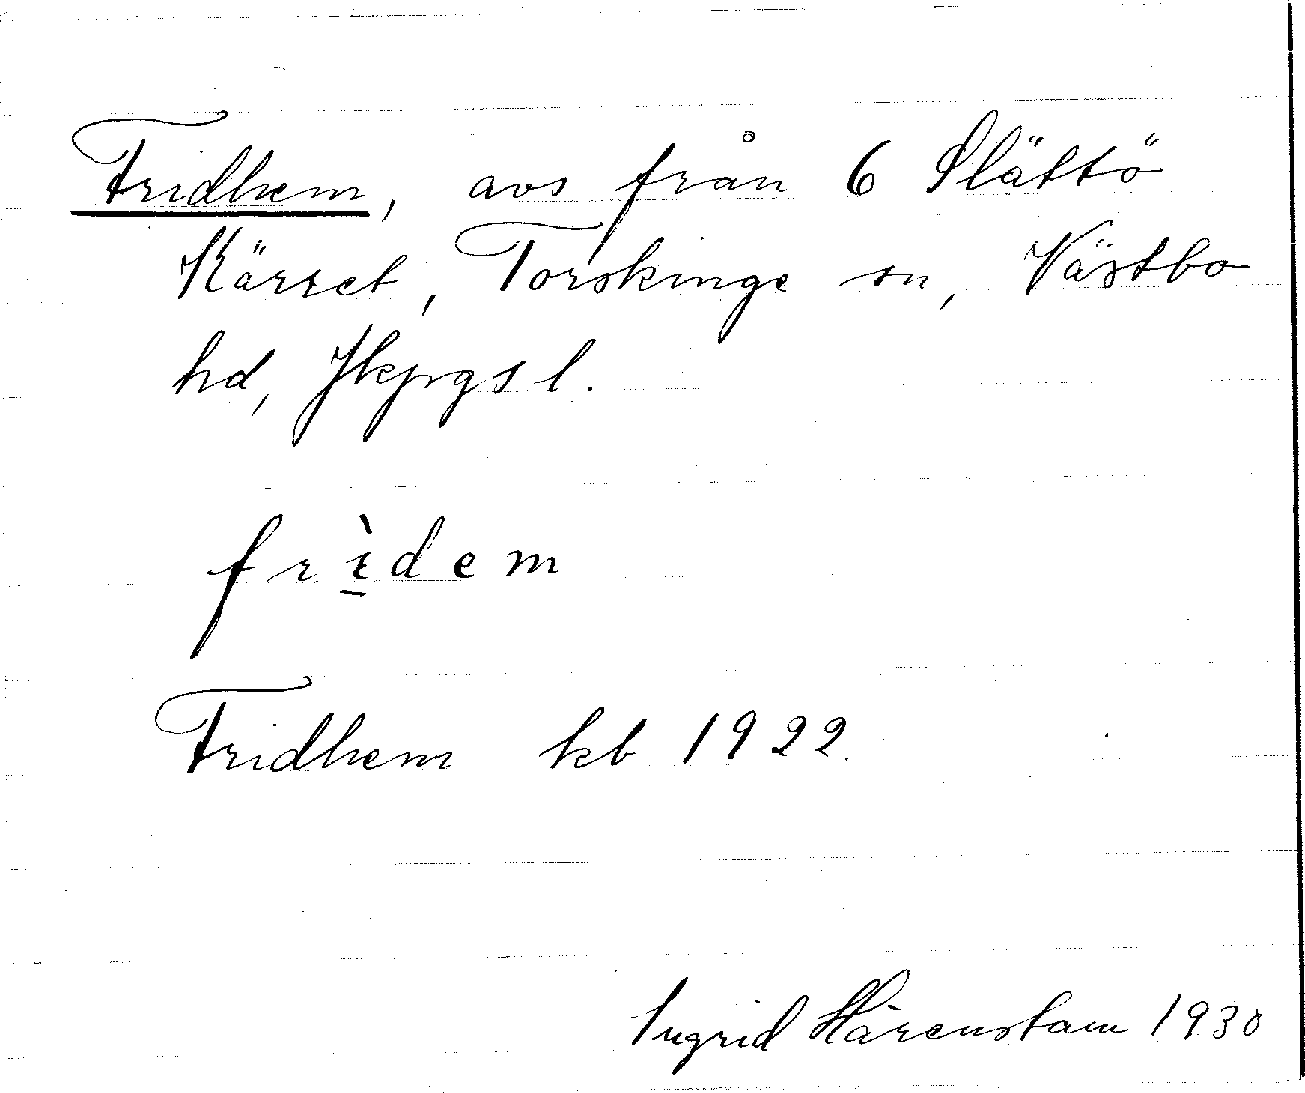 Fridhem, avs från 6 Slättö
Kärret, Torskinge sn, Västbo
hd, Jkpgs l.
frı̠̀dem
Fridhem kb 1922.
Ingrid Härenstam 1930